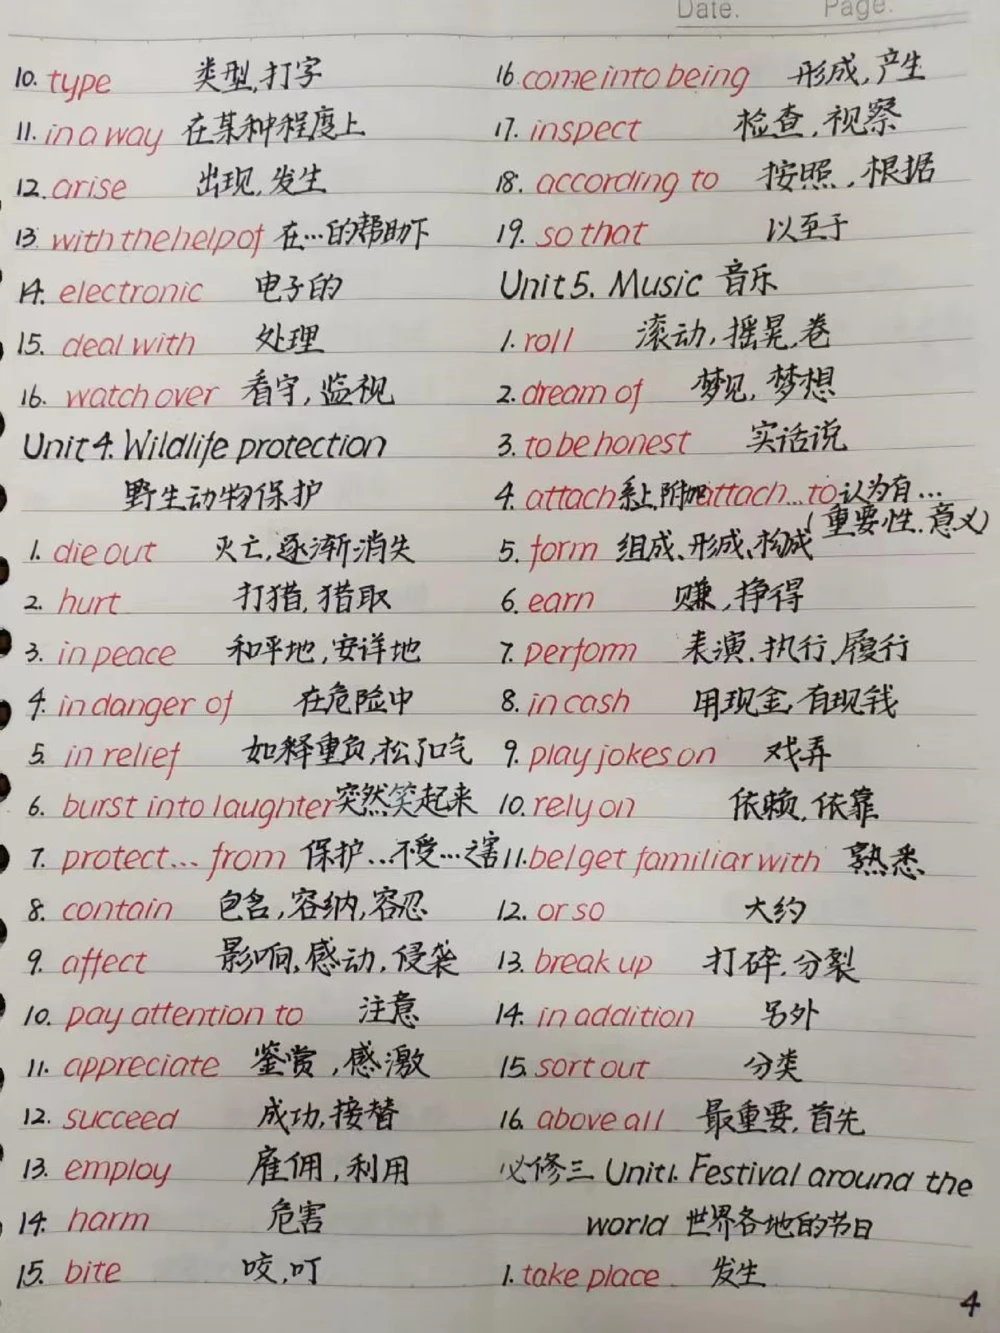 Date.    Page.
10. type 类型,打字
11. in a way 在某种程度上
12. arise 出现,发生
13. with the help of 在…的帮助下
14. electronic 电子的
15. deal with 处理
16. watch over 看守,监视
Unit 4. Wildlife protection
野生动物保护
1. die out 灭亡,逐渐消失
2. hurt 打猎,猎取
3. in peace 和平地,安详地
4. in danger of 在危险中
5. in relief 如释重负,松了口气
6. burst into laughter 突然笑起来
7. protect... from 保护…不受…之害
8. contain 包含,容纳,容忍
9. affect 影响,感动,侵袭
10. pay attention to 注意
11. appreciate 鉴赏,感激
12. succeed 成功,接替
13. employ 雇佣,利用
14. harm 危害
15. bite 咬,叮
16. come into being 形成,产生
17. inspect 检查,视察
18. according to 按照,根据
19. so that 以至于
Unit 5. Music 音乐
1. roll 滚动,摇晃,卷
2. dream of 梦见,梦想
3. to be honest 实话说
4. attach 系上,附加 attach...to 认为有…
(重要性.意义)
5. form 组成、形成、构成
6. earn 赚,挣得
7. perform 表演.执行,履行
8. in cash 用现金,有现钱
9. play jokes on 戏弄
10. rely on 依赖,依靠
11. be/get familiar with 熟悉
12. or so 大约
13. break up 打碎,分裂
14. in addition 另外
15. sort out 分类
16. above all 最重要,首先
必修三 Unit1. Festival around the
world 世界各地的节日
1. take place 发生
4